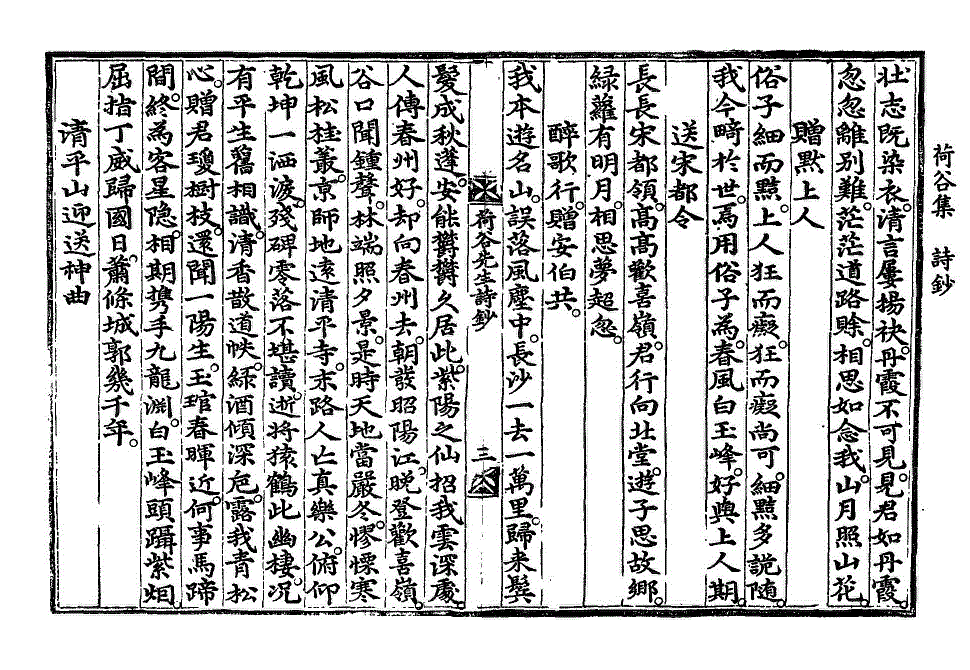 荷谷集　詩鈔
壮志既染衣。清言屢揚袂。丹霞不可見。見君如丹霞。
忽忽離別難。茫茫道路賒。相思如念我。山月照山花。
贈默上人
俗子細而黠。上人狂而癡。狂而癡尚可。細黠多詭隨。
我今畸於世。焉用俗子為。春風白玉峰。好與上人期。
送宋都令
長長宋都領。高高歡喜嶺。君行向北堂。遊子思故鄉。
綠蘿有明月。相思夢超忽。
醉歌行。贈安伯共。
我本遊名山。誤落風塵中。長沙一去一萬里。歸来鬂
荷谷先生詩鈔　三
髮成秋蓬。安能欝欝久居此。紫陽之仙招我雲深處。
人傳春州好。却向春州去。朝發昭陽江。晚登歡喜嶺。
谷口聞鍾聲。林端照夕景。是時天地當嚴冬。憀慄寒
風松桂叢。京師地遠清平寺。末路人亡真樂公。俯仰
乾坤一洒淚。殘碑零落不堪讀。逝將猿鶴此幽棲。況
有平生舊相識。清香散道帙。綠酒傾深巵。露我青松
心。贈君瓊樹枝。還聞一陽生。玉琯春暉近。何事馬蹄
間。終為客星隐。相期携手九龍淵。白玉峰頭躡紫烟
屈指丁威歸國日。蕭條城郭幾千年。
清平山迎送神曲